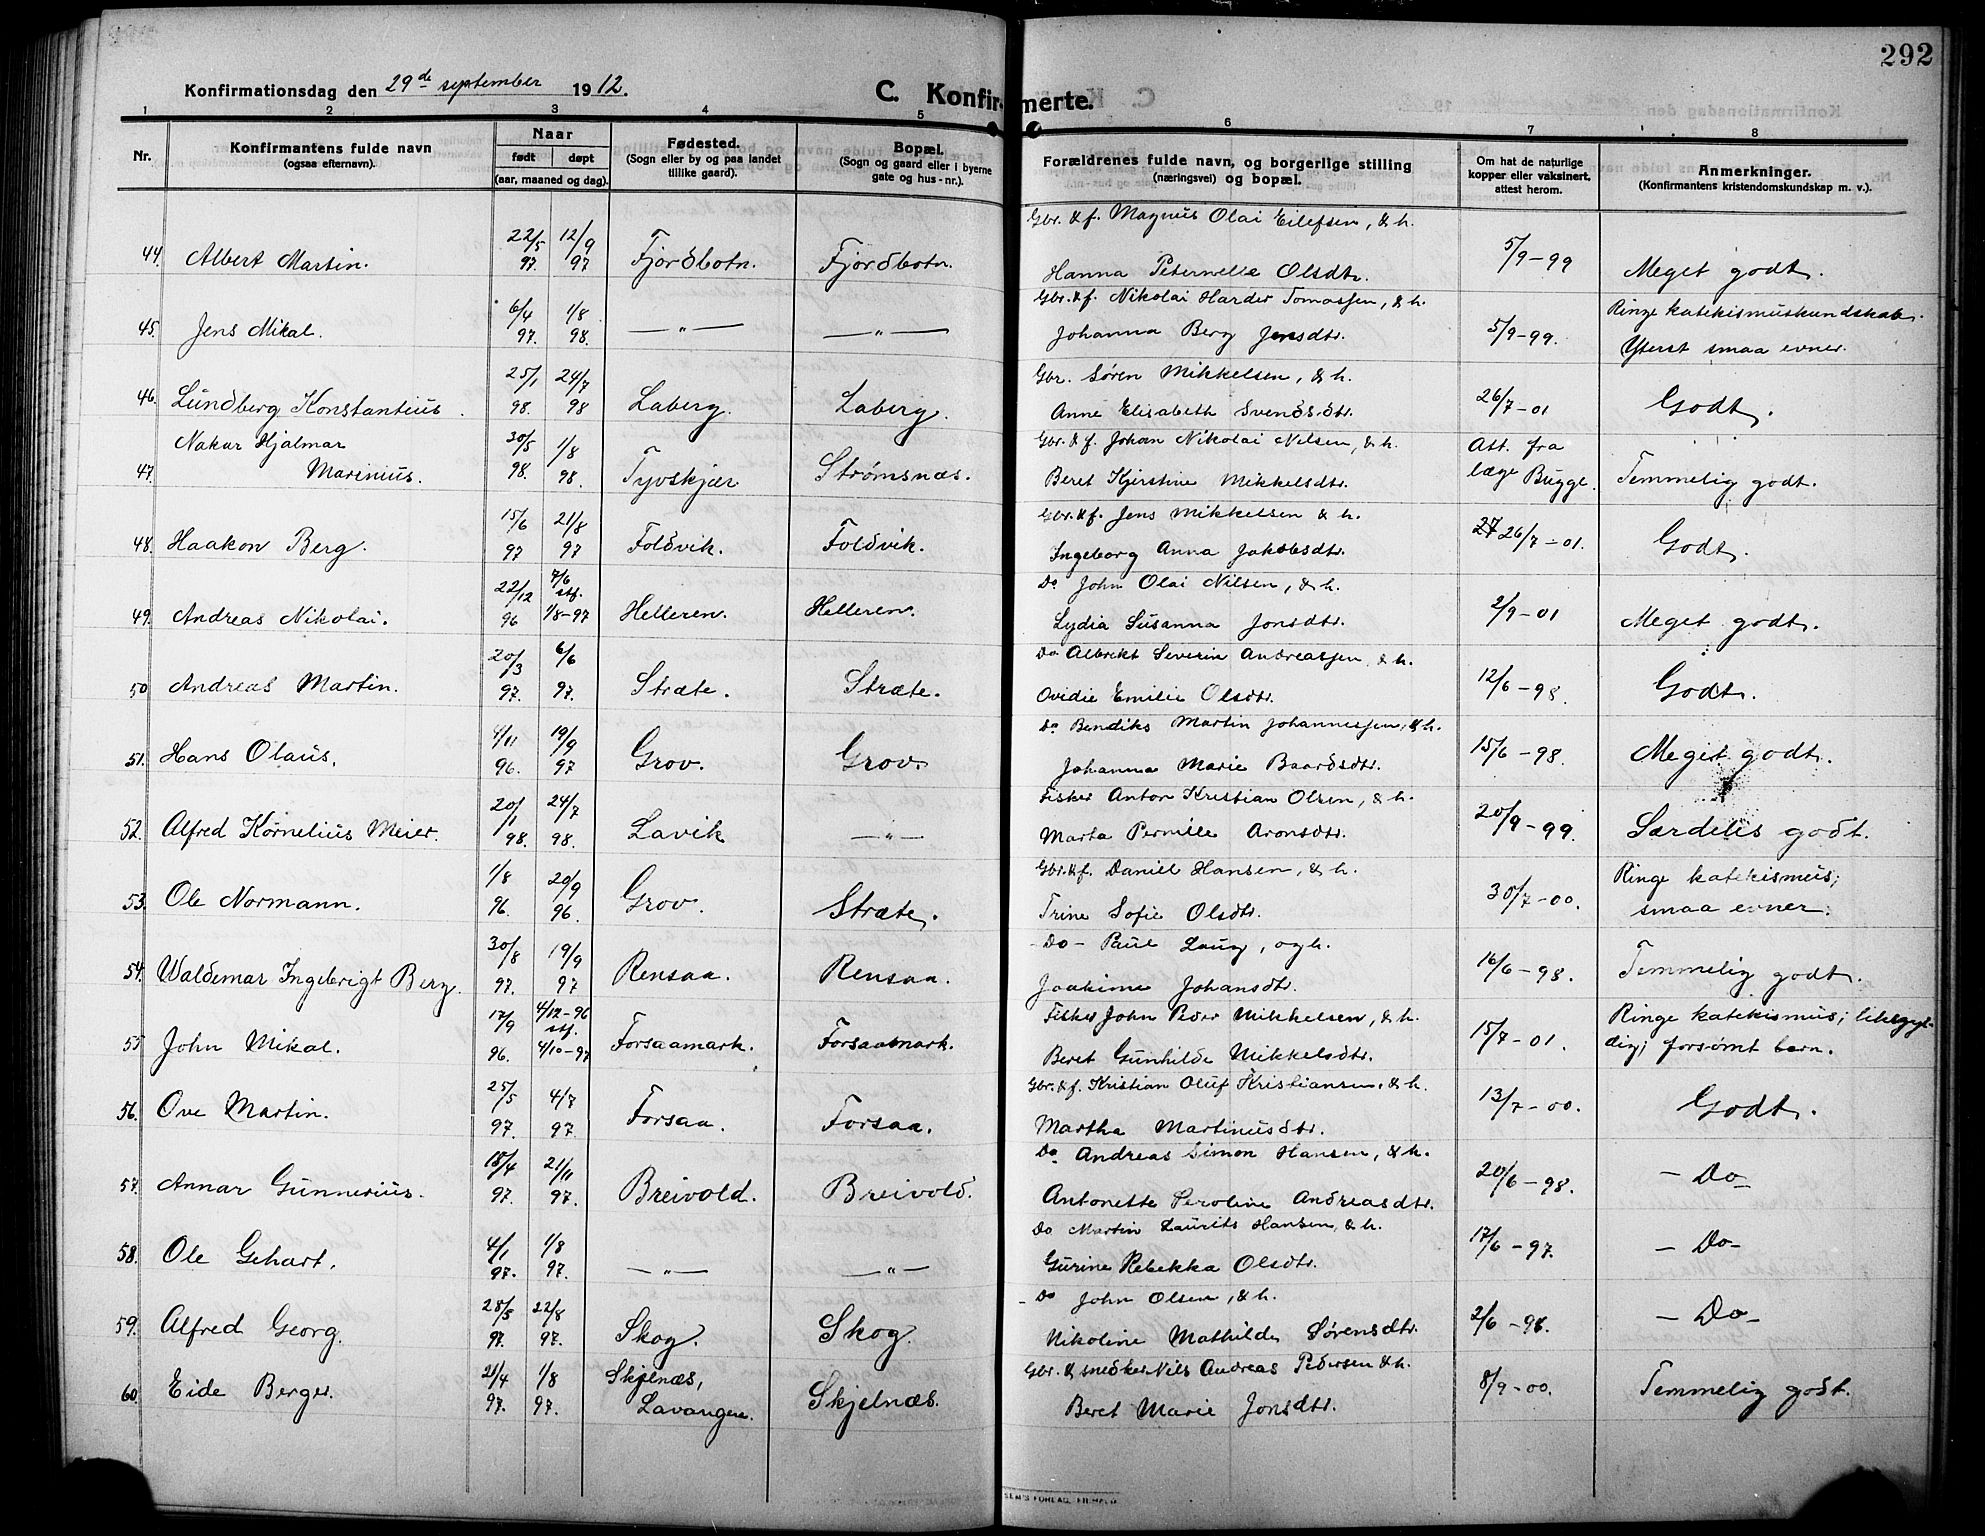 292
Konfirmationsdag den 29de september 1912.
C. Konfirmerte.
1 2 3 4 5 6 7 8
Nr.
Konfirmantens fulde navn
(ogsaa efternavn).
Naar
født døpt
(aar, maaned og dag).
Fødested.
(Sogn eller by og paa landet
tillike gaard).
Bopæl.
(Sogn og gaard eller i byerne
gate og hus-nr.).
Forældrenes fulde navn, og borgerlige stilling
(næringsvei) og bopæl.
Om hat de naturlige
kopper eller vaksinert,
attest herom.
Anmerkninger.
(Konfirmantens kristendomskundskap m. v.).
Gbr. & f. Magnus Olai Eilefsen, & h.
22/5 12/9
44. Albert Martin. 97. 97 Fjordbotn. Fjordbotn. Hanna Peternelle Olsdtr. 5/9-99 Meget godt.
6/4 1/8 Gbr. & f. Nikolai Harder Tomassen, & h. Ringe katekismuskundskab.
45. Jens Mikal. 97. 98. —"— —"— Johanna Berg Jensdtr. 5/9-99. Yterst smaa evner.
25/1 24/7 Gbr. Søren Mikkelsen, & h.
46. Lundberg Konstantius. 98. 98 Laberg. Laberg. Anne Elisabeth Svendsdtr. 26/7-01 Godt.
Nakur Hjalmar 30/5 1/8 Gbr. & f. Johan Nikolai Nilsen, & h. Att. fra
47. Marinius. 98. 98. Tyvskjær Strømsnæs. Beret Kjerstine Mikkelsdtr. læge Bugge. Temmelig godt.
15/6 21/8 Gbr. & f. Jens Mikkelsen & h.
48. Haakon Berg. 97 97 Foldvik. Foldvik. Ingeborg Anna Jakobsdtr. 27 26/7-01. Godt.
22/12 7/6 stf. Do John Olai Nilsen, & h.
49. Andreas Nikolai. 96 1/8-97 Helleren. Helleren. Lydia Susanna Jonsdtr. 2/9-01 Meget godt.
20/3 6/6 Do Albrekt Severin Andreassen & h.
50 Andreas Martin. 97. 97. Stræte. Stræte. Ovidie Emilie Olsdtr. 12/6-98. Godt.
4/11 19/9 Do Bendiks Martin Johannessen, & h.
51. Hans Olaus. 96. 97 Grov. Grov. Johanna Marie Baardsdtr. 15/6-98. Meget godt.
20/1 24/7 Fisker Anton Kristian Olsen, & h.
52. Alfred Kornelius Meier. 98. 98. Lavik —"— Marta Pernille Aronsdtr. 20/9-99. Særdeles godt.
1/8 20/9 Gbr. & f. Daniel Hansen, & h. Ringe katekismus;
53. Ole Normann. 96. 96. Grov. Stræte. Trine Sofie Olsdtr. 30/7-00. smaa evner.
30/8 19/9 -Do- Paul Laug, og h.
54. Waldemar Ingebrigt Berg. 97. 97 Rensaa. Rensaa. Joakime Johansdtr. 16/6-98. Temmelig godt.
17/9 4/12-96 stf. Fisker John Peder Mikkelsen, & h. Ringe katekismus; likegyl-
55 John Mikal. 96. 4/10-97 Forsaamark. Forsaamark. Beret Gunhilde Mikkelsdtr. 15/7-01. dig; forsømt barn.
25/5 4/7 Gbr. & f. Kristian Oluf Kristiansen, & h.
56. Ove Martin. 97. 97. Forsaa. Forsaa. Martha Martinusdtr. 13/7-00. Godt.
18/4 21/11 Do Andreas Simon Hansen, & h.
57. Annar Gunnerius. 97. 97. Breivold. Breivold. Antonette Peroline Andreasdtr. 20/6-98. - Do -
4/1 1/8 Do Martin Laurits Hansen, & h.
58. Ole Gehart. 97. 97. —"— —"— Gurine Rebekka Olsdtr. 17/6-97. - Do -
28/5 22/8 - Do John Olsen, & h.
59. Alfred Georg. 97. 97. Skog. Skog. Nikoline Mathilde Sørensdtr. 2/6-98. - Do -
21/4 1/8 Skjelnæs, Gbr. & snedker Nils Andreas Pedersen & h.
60. Eide Berger. 97. 97. Lavangen. Skjelnæs. Beret Marie Jonsdtr. 8/9-00. Temmelig godt.